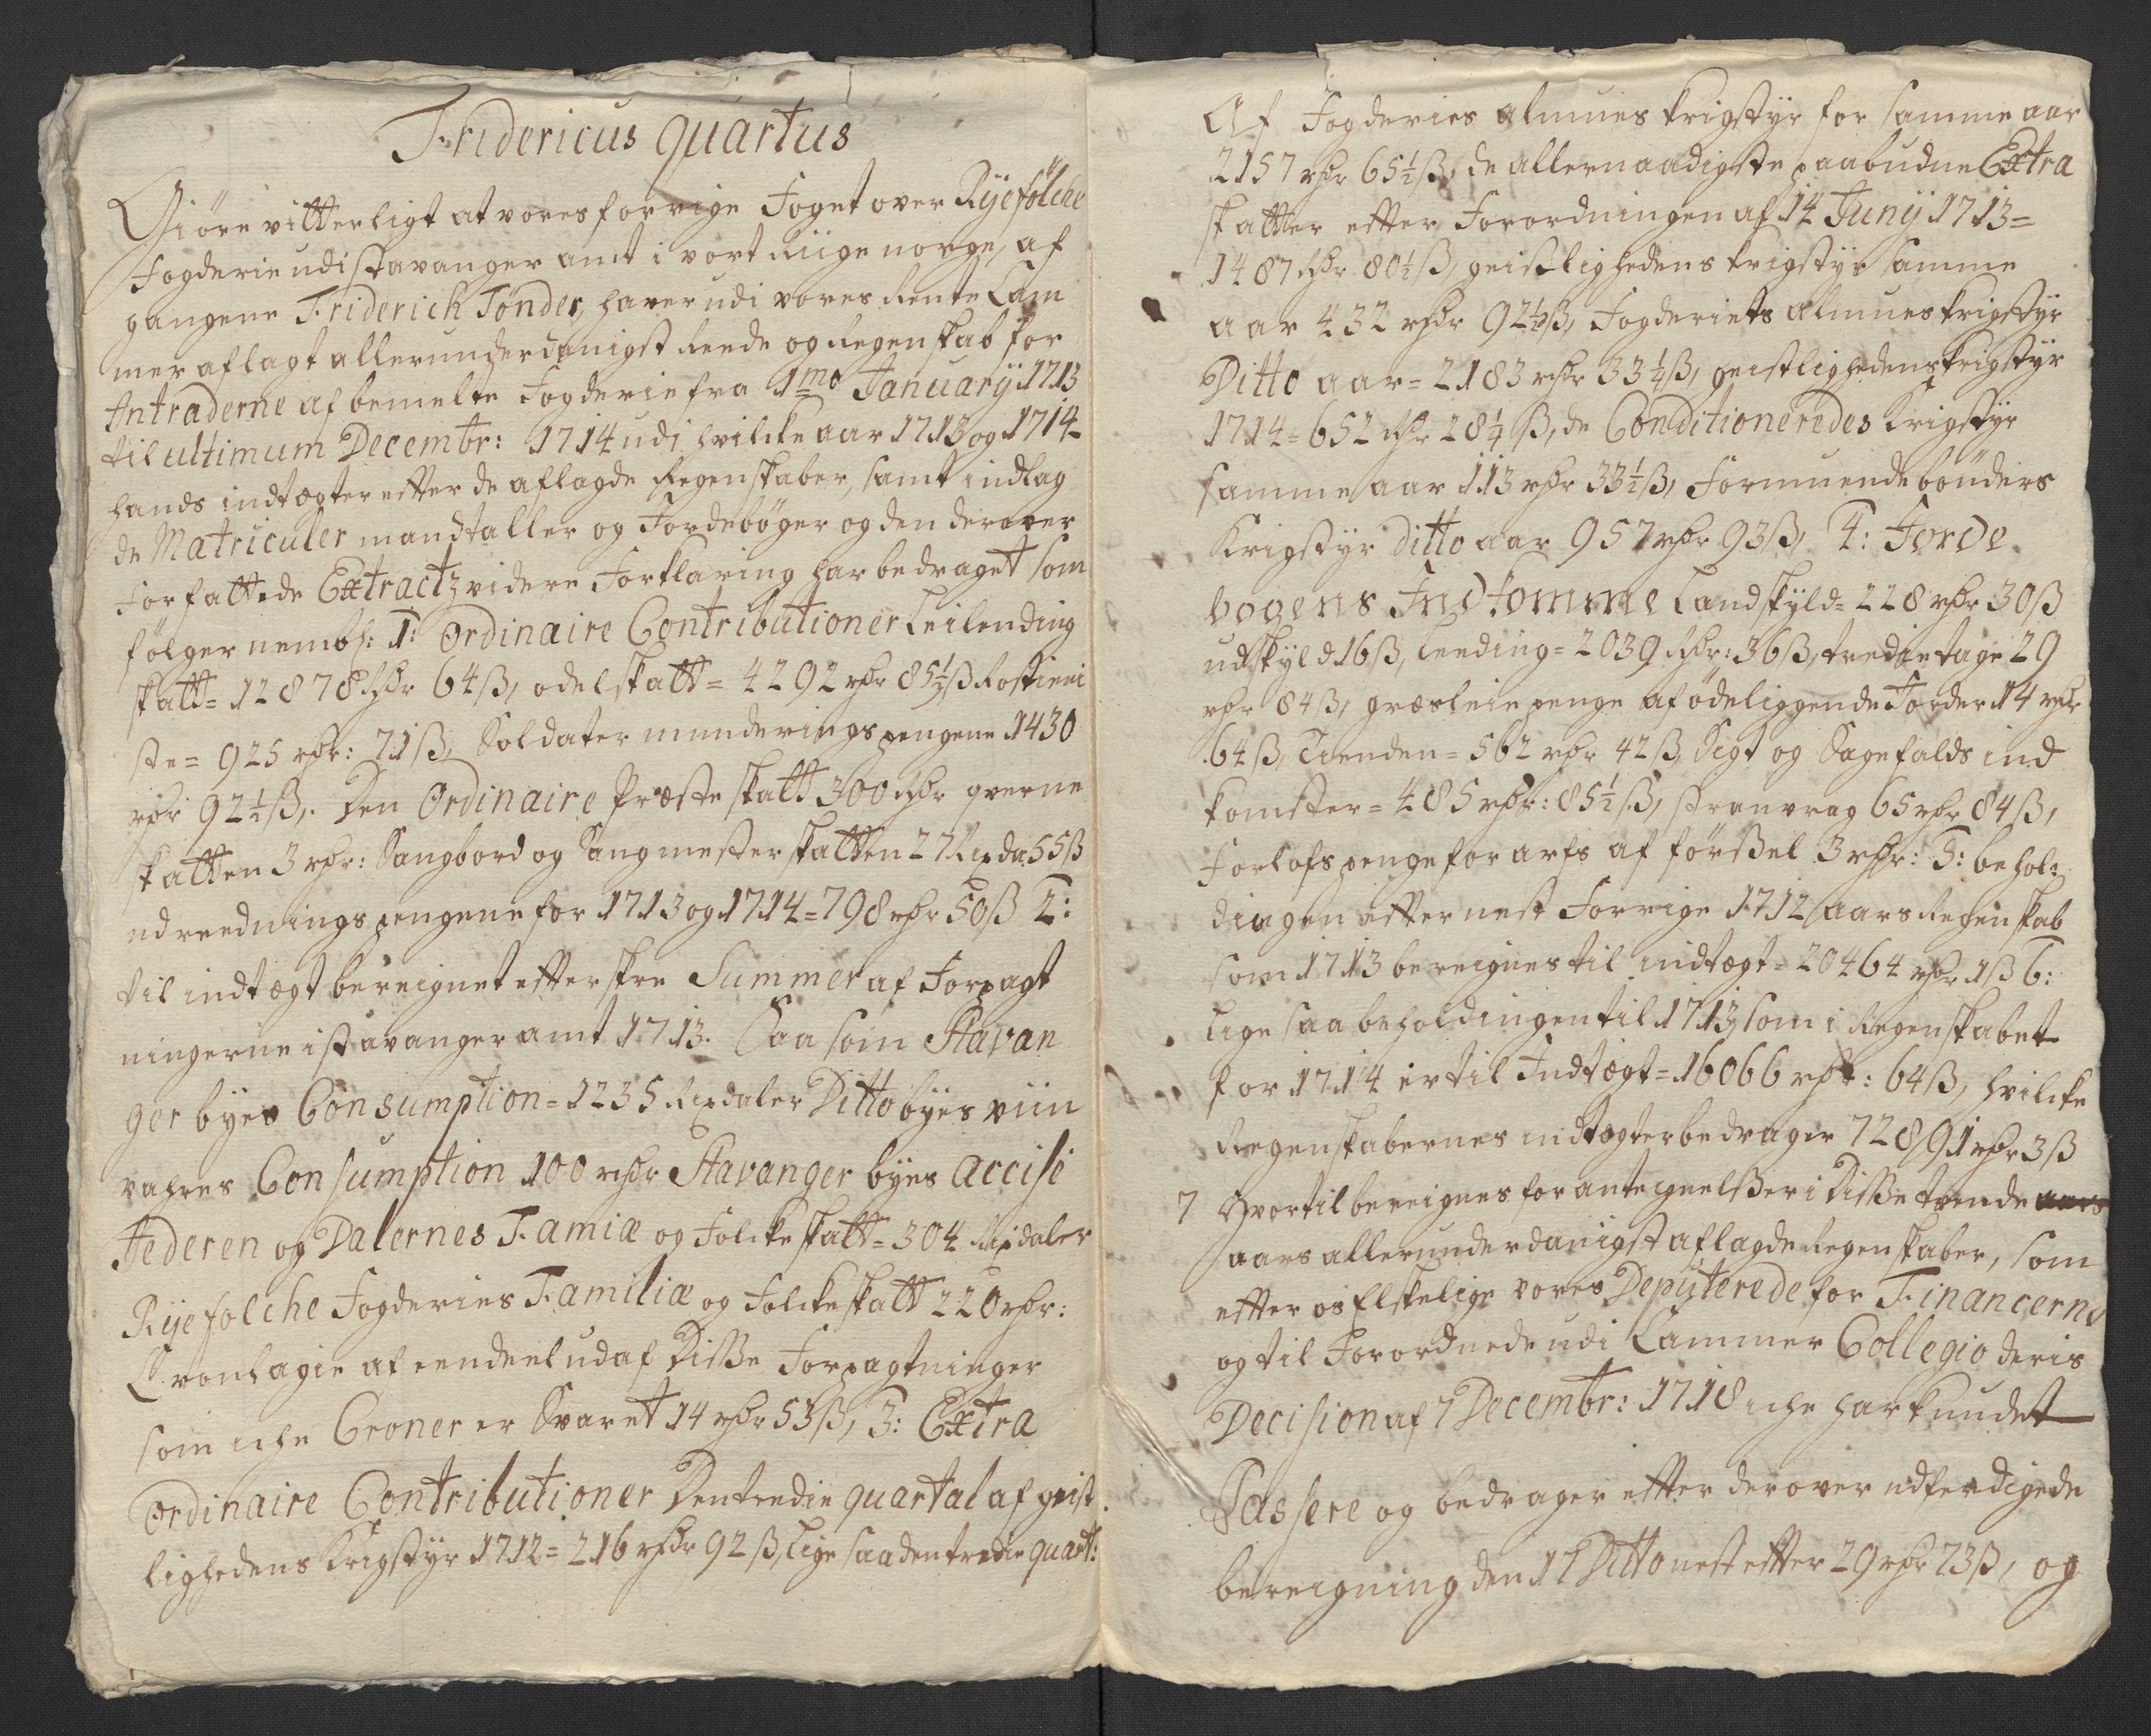 Fridericus quartus
Giöre vitterligt at vores forrige Foget over Ryefölche
Fogderie udi Stavanger amt i vort Riige norge, af
gangene Friderich Tönder, haver udi vores Rente Cam
mer aflagt allerunderdanigst Reede og Regenskab for
Intraderne af bemelte Fogderie fra 1mo January 1713
til ultimum Decembr: 1714 udi hvilcke aar 1713 og 1714
hands indtægter efter de aflagde Regenskaber, samt indlag
de Matriculer mandtaller og Jordebøger og den derover
forfattede Extractz videre Forklaring har bedraget som
følger nembl: 1: Ordinaire Contributioner Leilending
skatt= 12878 rdr 64 ß, odelskatt= 4292 rdr 85½ ß Rostieni
ste= 925 rdr: 71 ß, Soldater munderings pengene 1430
rdr 92½ ß,. Den Ordinaire Præste skatt 300 rdr qverne
skatten 3 rdr: Saugbord og Saugmester skatten 27 Rixdr 55 ß
udreednings pengene for 1713 og 1714= 798 rdr 50 ß 2:
til indtægt bereignet efterskre Summer af Forpagt
ningerne i Stavanger amt 1713. Saa som Stavan
ger byes Consumption= 1235 Rixdaler Ditto byes viin
vahres Consumption 100 rdr Stavanger byes Accise
Jederen og Dalernes Famiæ og Folckeskatt= 304 Rixdaler
Ryefolche Fogderies Familiæ og Folckeskatt 220 rdr:
Cronlagie af eendeel udaf Disse Forpagtninger
som iche Croner er Svaret 14 rdr 53 ß, 3: Extra
Ordinaire Contributioner Den tredie quartal af geist
lighedens Krigstyr 1712= 216 rdr 92 ß, lige saa den tredie quart:
Af Fogderies almues krigstyr for samme aar
2157 rdr 65½ ß, de allernaadigste paabudne Extra
skatter efter Forordningen af 14 Juny 1713=
1487 rdr 80½ ß, geistlighedens krigstyr samme
aar 432 rdr 92½ ß, Fogderiets almues krigstyr
Ditto aar= 2183 rdr 33¼ ß, geistlighedens krigstyr
1714= 652 rdr 28¼ ß, de Conditioneredes Krigstyr
samme aar 113 rdr 33½ ß, Formuende bönders
Krigstyr ditto aar 957 rdr 93 ß, 4: Jorde
bogens Indkomme Landskyld= 228 rdr 30 ß
udskyld 16 ß, Leeding= 2039 rdr: 36 ß, tredie tage 29
rdr 84 ß, græsleie penge af ödeliggende Jorder 14 rdr
64 ß, Tienden= 562 rdr 42 ß, Sigt og Sagefalds ind
komster= 485 rdr: 85½ ß, stranvrag 65 rdr 84 ß,
Forlofs penge for arfs af förßel 3 rdr: 5: behol:
dingen efter nest Forrige 1712 aars Regenskab
som 1713 bereignes til indtægt= 20464 rdr 1 ß 6:
Lige saa beholdingen til 1713 som i Regenskabet
for 1714 er til Indtægt= 16066 rdr: 64 ß, hvilcke
Regenskabernes indtægter bedrager 72891 rdr 3 ß
7 Hvortil bereignes for antegnelßer i Disse tvende
aars allerunderdanigst aflagde Regenskaber, som
efter os Elskelige vores Deputerede for Financerne
og til Forordnede udi Cammer Collegio deris
Decision af 7 Decembr: 1718 iche har kundet
Passere og bedrager efter derover udferdigede
bereigning den 17 Ditto nest efter 29 rdr 23 ß, og